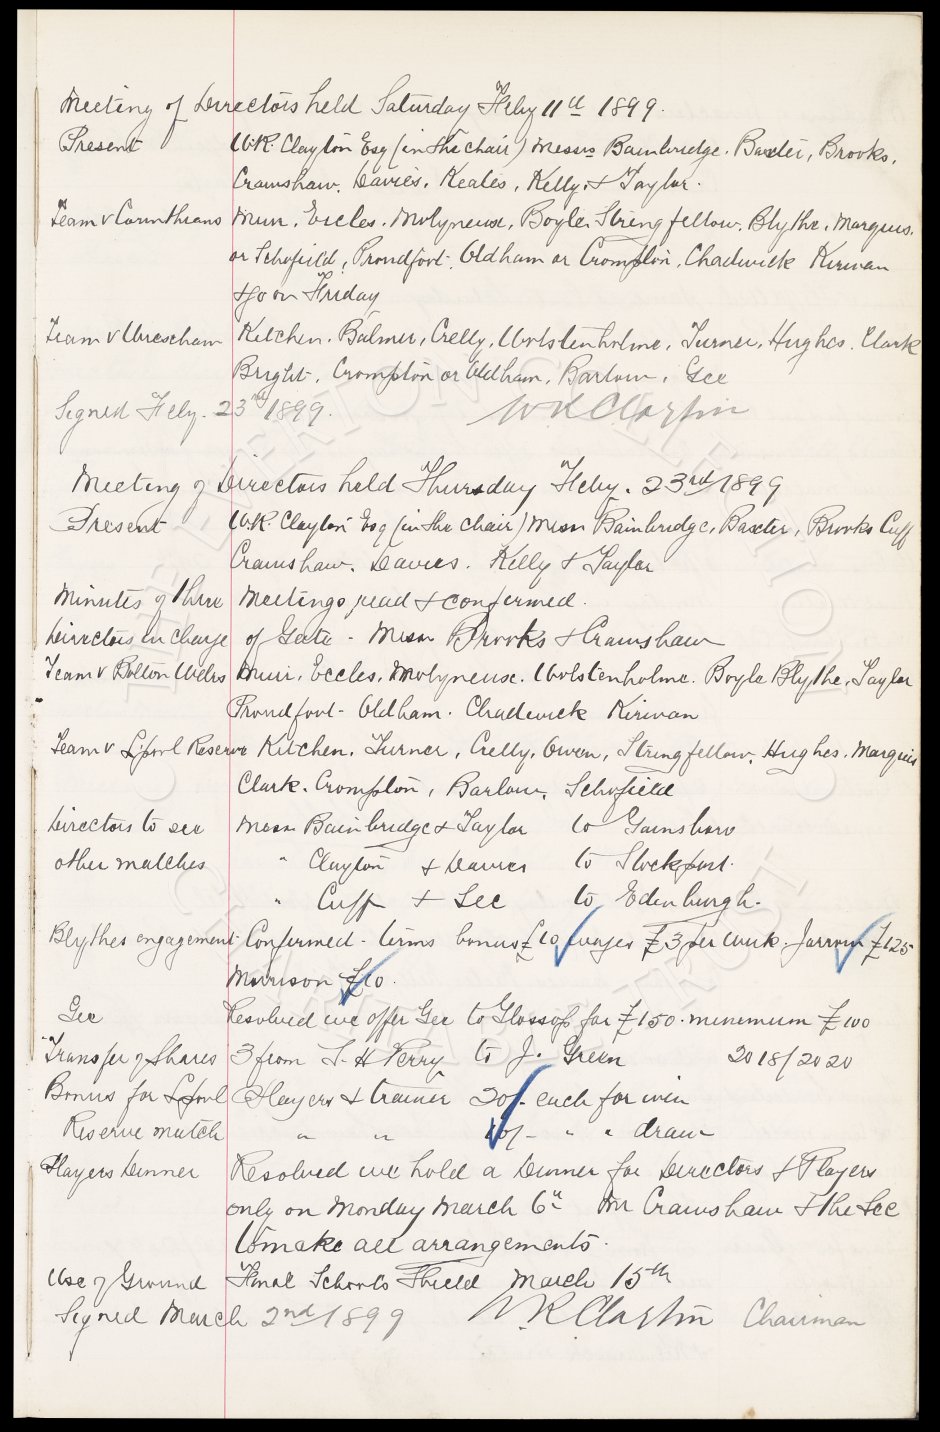 Meeting of Directors held Saturday Feby 11th 1899.
Present W.R. Clayton Esq (in the chair) Messrs Bainbridge. Baxter, Brooks,
Crawshaw. Davies. Keates, Kelly, & Taylor.
Team v Corinthians Muir, Eccles. Molyneux, Boyle. Stringfellow. Blythe, Marquis.
or Schofield, Proudfoot. Oldham or Crompton. Chadwick Kirwan
& go on Friday
Team v Wrexham Kitchen. Balmer, Crelly, Wolstenholme. Turner, Hughes. Clark
Bright. Crompton or Oldham, Barlow, Gee
Signed Feby. 23rd 1899. W R Clayton
Meeting of Directors held Thursday Feby. 23rd 1899
Present W.R. Clayton Esq (in the chair) Messrs Bainbridge, Baxter, Brooks Cuff
Crawshaw. Davies. Kelly & Taylor
Minutes of three Meetings read & confirmed.
Directors in charge of Gate - Messrs Brooks & Crawshaw
Team v Bolton Wdrs Muir, Eccles. Molyneux. Wolstenholme. Boyle Blythe, Taylor
Proudfoot - Oldham. Chadwick Kirwan
Team v Lpool Reserve Kitchen. Turner, Crelly, Owen, Stringfellow, Hughes. Marquis
Clark. Crompton, Barlow, Schofield
Directors to see Messrs Bainbridge & Taylor to Gainsboro
other matches " Clayton & Davies to Stockport.
" Cuff & Sec to Edenburgh.
Blythes engagement Confirmed - terms bonus £10 wages £3 per week. Jarrow £125
Morrison £10.
Gee Resolved we offer Gee to Glossop for £150. minimum £100
Transfer of Shares 3 from L. H Perry to J. Green 2018/2020
Bonus for Lpool Players & trainer 20/- each for win
Reserve match " " 10/- " " draw
Players Dinner Resolved we hold a Dinner for Directors & Players
only on Monday March 6th Mr Crawshaw & the Sec
to make all arrangements.
Use of Ground Final Schools Shield March 15th
Signed March 2nd 1899 W. R Clayton Chairman
THE EVERTON COLLECTION
CHARITABLE TRUST